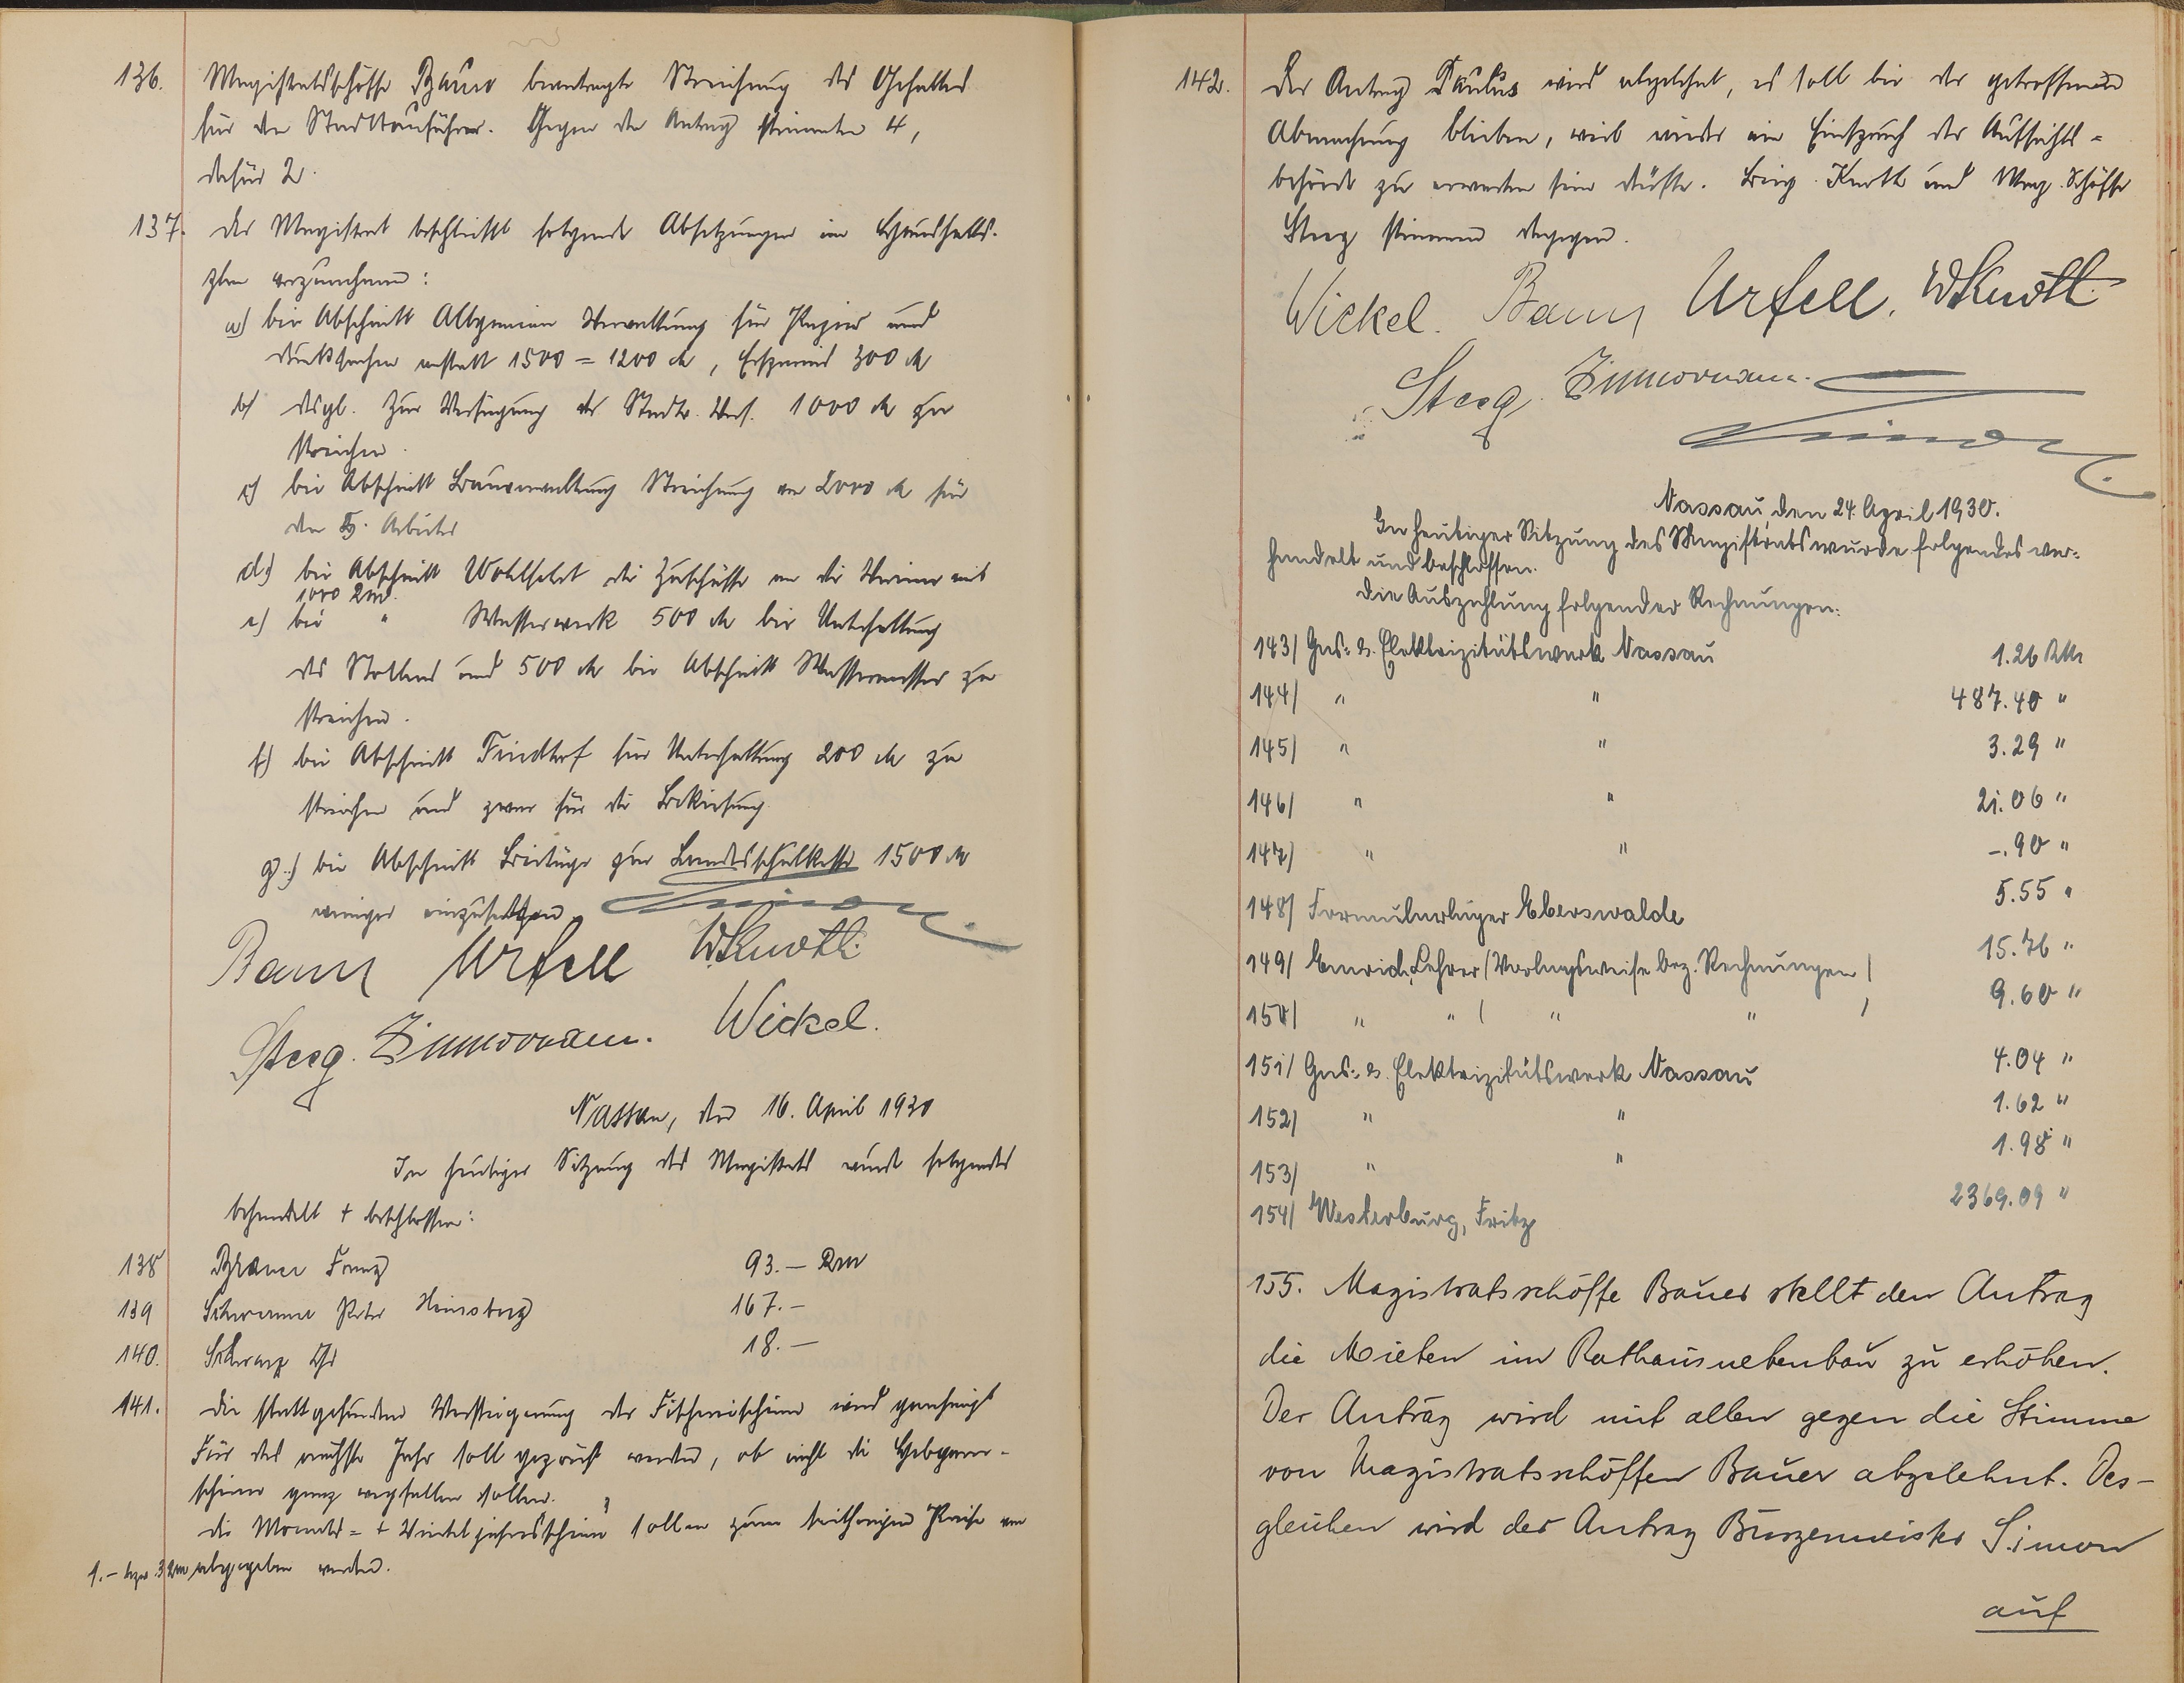 136. Magistratsschöffe Bauer beantragte Streichung des Gehaltes
für den Stadtbauführer. Gegen den Antrag stimmten 4,
dafür 2.
137. Der Magistrat beschließt folgende Absetzungen im Haushalts-
plan vorzunehmen:
a) bei Abschnitt Allgemeine Verwaltung für Papier und
Drucksachen anstatt 1500 = 1200 M, Ersparnis 300 M
b) desgl. zur Verfügung der Stadtv. Vers. 1000 M zu
streichen.
c) bei Abschnitt Bauverwaltung Streichung von 2000 M für
den Arbeiter
d.) bei Abschnitt Wohlfahrt die Zuschüsse an die Vereine mit
1000 RM.
e) bei " Wasserwerk 500 M bei Unterhaltung
des Stollens und 500 M bei Abschnitt Wassermesser zu
streichen.
f.) bei Abschnitt Friedhof für Unterhaltung 200 M zu
streichen und zwar für die Bekiesung.
g.) bei Abschnitt Beiträge zur Landesschulkasse 1500 M
weniger einzusetzen
Simon.
Bauer Urfell W. Knoth
Steeg. Zimmermann. Wickel.
Nassau, den 16. April 1930
In heutiger Sitzung des Magistrats wurde folgendes
behandelt + beschlossen:
138 Franz 93.— RM
139 Peter 167.—
140. Schwarz 18.—
141. Die stattgefundene Versteigerung der Fischereischeine wird genehmigt
Für das nächste Jahr soll geprüft werden, ob nicht die
scheine ganz wegfallen sollen.
Die Monats- + Vierteljahresscheine sollen zum seitherigen Preise von
1.— bzw. 3 RM abgegeben werden.
142. Der Antrag Paulus wird abgelehnt, es soll bei der getroffenen
Abmachung bleiben, weil wieder ein Einspruch der Aufsichts-
behörde zu erwarten sein dürfte. Beig. Knoth und Mag. Schöffe
Steeg stimmen dagegen.
Wickel. Bauer Urfell. W Knoth
Steeg. Zimmermann.
Simon.
Nassau, den 24. April 1930.
In heutiger Sitzung des Magistrats wurde folgendes ver-
handelt und beschlossen.
Die Auszahlung folgender Rechnungen:
143/ Gas- & Elektrizitätswerk Nassau 1.26 RM
144/ " " 487.40 "
145/ " " 3.29 "
146/ " " 21.06 "
147/ " " -.90 "
148/ Formularlager Eberswalde 5.55 "
149/ Emrich, Lehrer (Vorlagsweise bez. Rechnungen) 15.76 "
150/ " " ( " " ) 9.60 "
151/ Gas- & Elektrizitätswerk Nassau 4.04 "
152/ " " 1.62 "
153/ " " 1.98 "
154/ Westerburg, Fritz 2369.09 "
155. Magistratsschöffe Bauer stellt den Antrag
die Mieten im Rathausnebenbau zu erhöhen.
Der Antrag wird mit allen gegen die Stimme
von Magistratsschöffen Bauer abgelehnt. Des-
gleichen wird der Antrag Bürgermeister Simon
auf